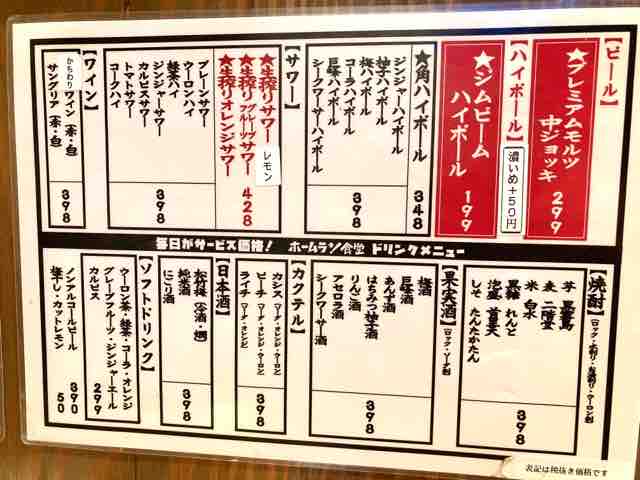 【ビール】
★プレミアムモルツ
中ジョッキ
299
【ハイボール】
濃いめ+50円
★ジムビーム
ハイボール
199
★角ハイボール
348
ジンジャーハイボール
柚子ハイボール
梅ハイボール
コーラハイボール
巨峰ハイボール
シークワーサーハイボール
398
【サワー】
★生搾りサワー
レモン
★生搾りグレープフルーツサワー
★生搾りオレンジサワー
428
プレーンサワー
ウーロンハイ
緑茶ハイ
ジンジャーサワー
カルピスサワー
トマトサワー
コークハイ
398
【ワイン】
かちわりワイン(赤・白)
サングリア(赤・白)
398
毎日がサービス価格! ホームラン食堂 ドリンクメニュー
【焼酎】
芋 黒霧島
麦 二階堂
米 白水
黒糖 れんと
泡盛 首里天
しそ たんたかたん
398
【果実酒】
梅酒
巨峰酒
あんず酒
はちみつ柚子酒
りんご酒
アセロラ酒
シークワーサー酒
398
【カクテル】
カシス(ソーダ・オレンジ・ウーロン)
ピーチ(ソーダ・オレンジ・ウーロン)
ライチ(ソーダ・オレンジ)
398
【日本酒】
松竹梅(冷酒・燗)
純米酒
にごり酒
398
【ソフトドリンク】
ウーロン茶・緑茶・コーラ・オレンジ
グレープフルーツ・ジンジャーエール
カルピス
299
ノンアルコールビール
390
梅干し・カットレモン
50
表記は税抜き価格です